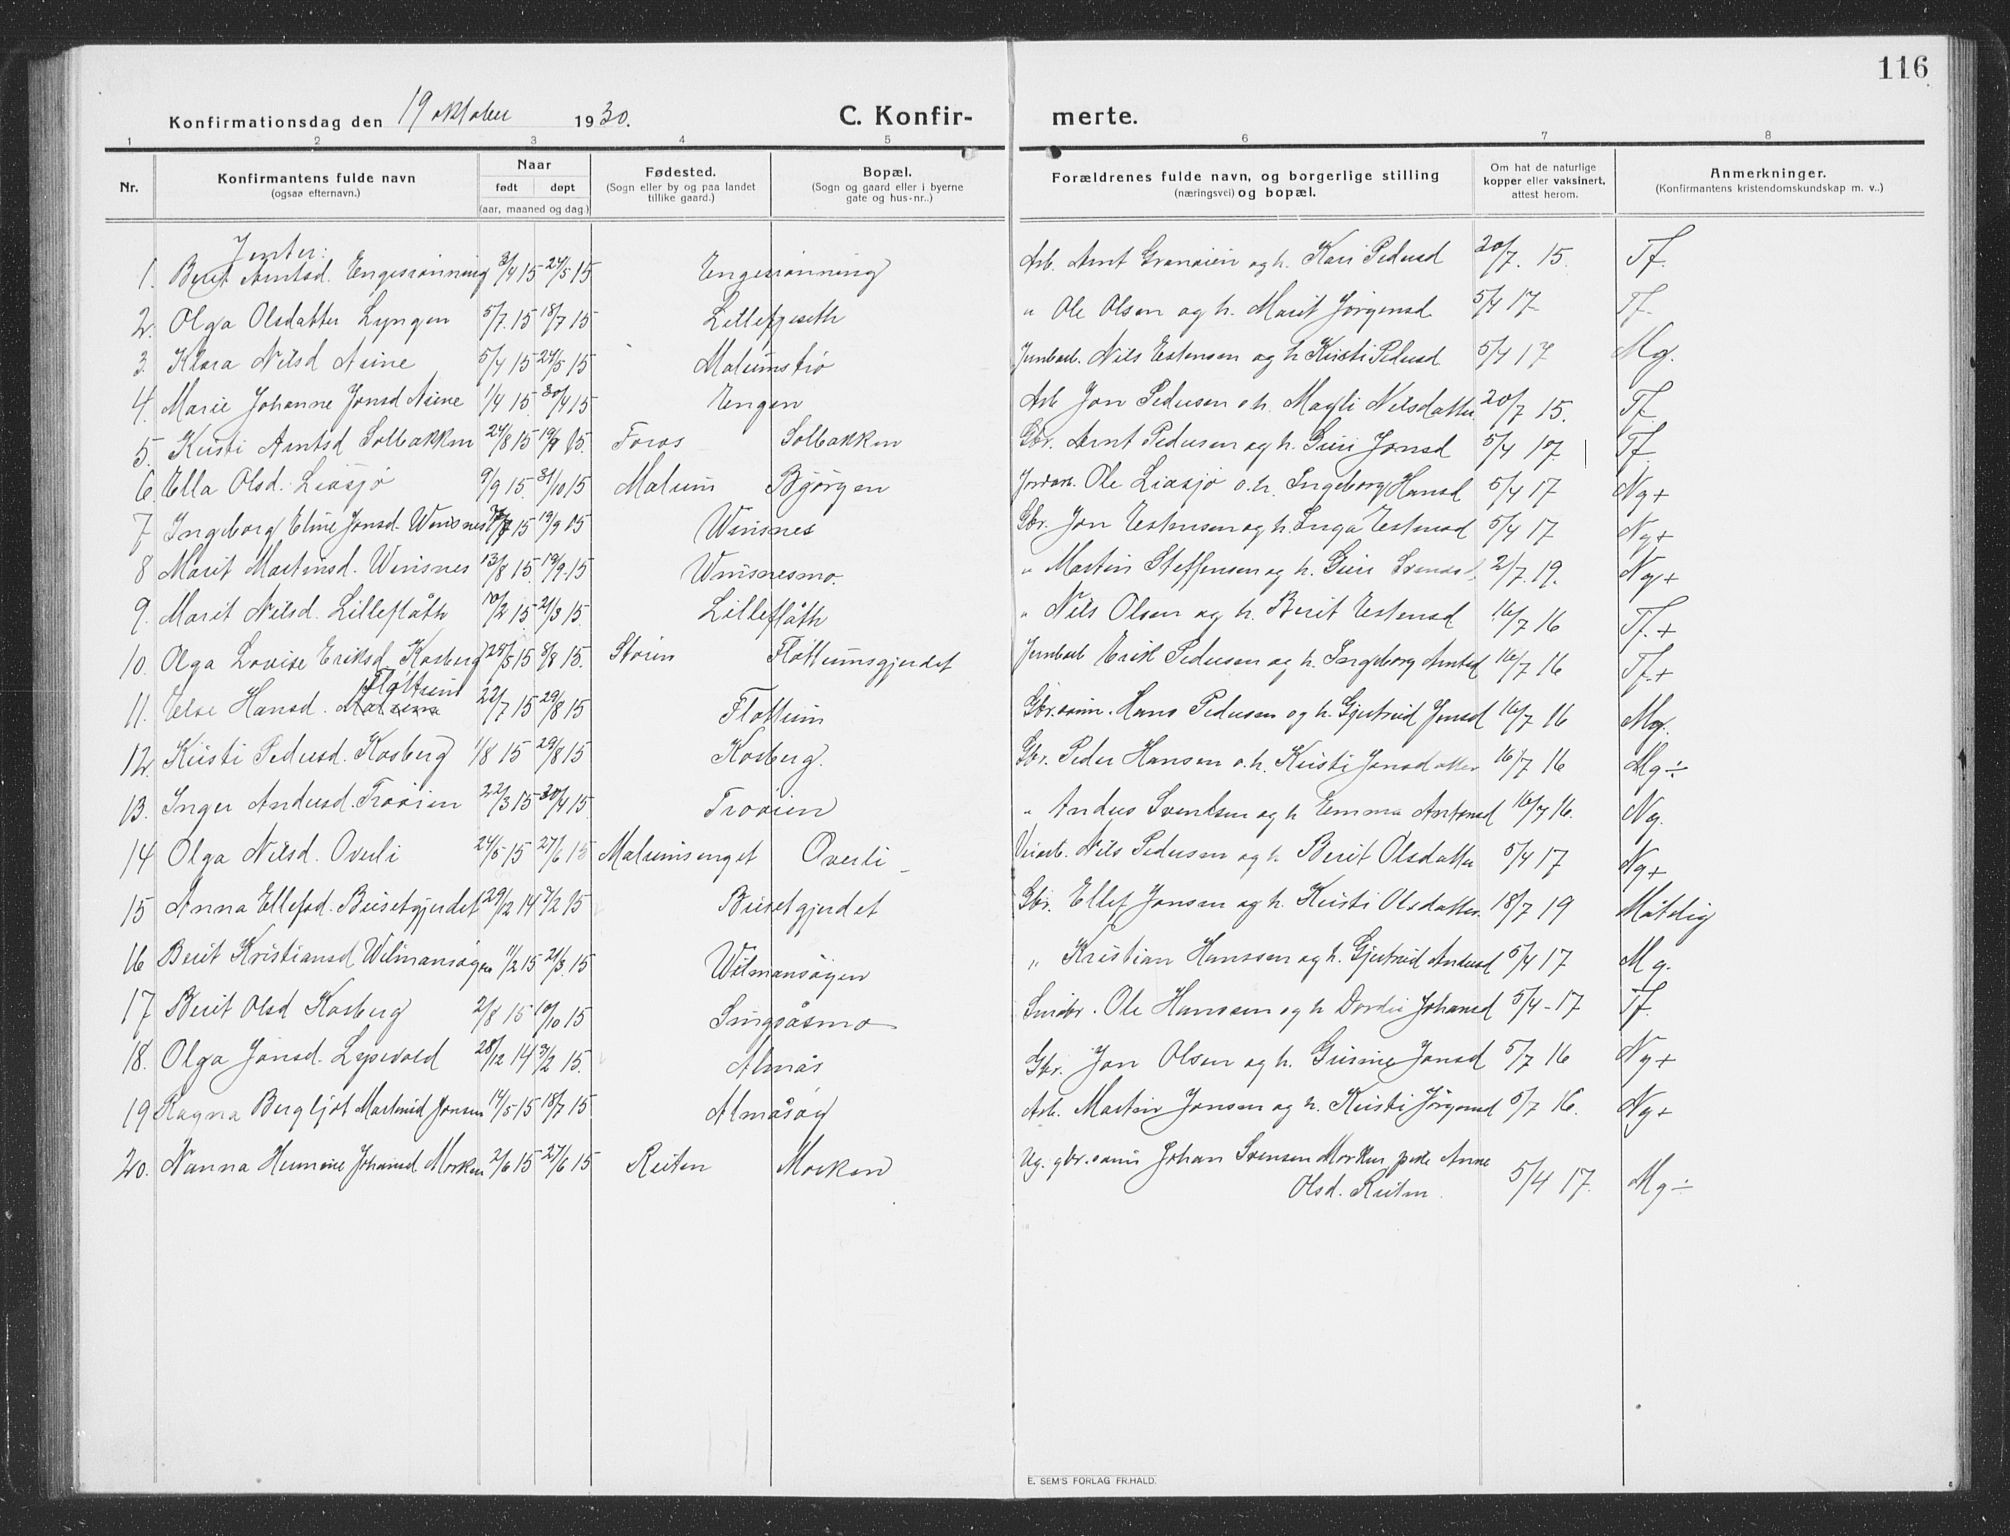 116
Konfirmationsdag den 19 oktober 1930. C. Konfir- merte.
1 2 3 4 5 6 7 8
Nr. Konfirmantens fulde navn (ogsaa efternavn.) Naar født døpt (aar, maaned og dag.) Fødested. (Sogn eller by og paa landet tillike gaard.) Bopæl. (Sogn og gaard eller i byerne gate og hus-nr..) Forældrenes fulde navn, og borgerlige stilling (næringsvei) og bopæl. Om hat de naturlige kopper eller vaksinert, attest herom. Anmerkninger. (Konfirmantens kristendomskundskap m. v..)
Jenter:
1. Berit Arntsd. Engesrønning 3/4 15 24/5 15 Engesrønning Arb. Arnt Granøien og h. Kari Pedersd 20/7. 15. Tf.
2. Olga Olsdatter Lyngen 5/7. 15 18/7 15 Lillefjeseth " Ole Olsen og h. Marit Jørgensd 5/4 17 Tf.
3. Klara Nilsd Aune 5/4 15 24/5 15 Malumstrø Jernbarb. Nils Estensen og h Kirsti Pedersd 5/4 17 Mg.
4. Marie Johanne Jonsd Aune 1/4 15. 30/4 15 Engen Arb Jon Pedersen o.h. Magli Nilsdatter 20/7 15. Tf
5. Kirsti Arntsd Solbakken 24/8 15 19/9 15. Foros Solbakken Gbr. Arnt Pedersen og h. Guri Jonsd 5/4 17. Tf.
6. Ella Olsd. Liasjø 9/9 15. 31/10 15 Malum Bjørgen Jordarb. Ole Liasjø o.h. Ingeborg Hansd 5/4 17 Ng+
7 Ingeborg Eline Jonsd. Winsnes 15 19/9 15 Winsnes Gbr. Jon Estensen og h. Inga Estensd 5/4 17 Ng+
8 Marit Martinsd. Winsnes 13/8 15. 19/9-15 Winsnesmo. " Martin Steffensen og h. Guri Svendsd. 2/7. 19. Ng+
9. Marit Nilsd. Lilleflåth 10/2 15. 21/3 15. Lilleflåth " Nils Olsen og h. Berit Estensd 16/7 16 Tf.+
10. Olga Lovise Eriksd. Kosberg 15 8/8 15. Støren Flottumsgjerdet Jernbarb Erik Pedersen og h. Ingeborg Arntsd 16/7 16 Tf.+
Flottum
11. Else Hansd. 22/7 15 29/8 15 Flottum Gbr.sønn. Hans Pedersen og h. Gjertrud Jensd 16/7 16 Mg.
12. Kirsti Pedersd. Kosberg 1/8 15 29/8 15 Kosberg. Gbr. Peder Hansen o.h. Kirsti Jonsdatter 16/7 16 Mg÷
13. Inger Andersd. Trøøien 22/3 15 30/4 15. Trøøien " Anders Svendsen og h Emma Antonsd 16/7 16. Ng.
14 Olga Nilsd. Overli 24/5 15 27/6 15 Malumsenget Overli Veiarb. Nils Pedersen og h Berit Olsdatter 5/4 17 Ng+
15 Anna Ellefsd. Busetgjerdet 29/12 14 7/2 15 Busetgjerdet Gbr. Ellef Jonsen og h. Kirsti Olsdatter. 18/7 19 Måtelig
16 Berit Kristiansd Wilmansøgen 11/2 15 21/3. 15 Wilmansøgen " Kristian Hanssen og h. Gjertrud Andersd 5/4 17 Mg.
17 Berit Olsd Kosberg 2/8 15 10/10 15 Singsåsmo Småbr. Ole Hanssen og h Dordi Johansd 5/4-17 Tf.
18. Olga Jonsd. Lysvold 28/12 14 7/2 15. Almås Gbr. Jon Olsen og h. Gurine Jonsd 5/7 16 Ng+
19 Ragna Bergljot Martinsd Jonsen 14/5 15 18/7 15 Almåsøy Arb. Martin Jonsen og h. Kirsti Jørgensd 5/7 16. Ng+
20. Nanna Hermine Johansd. Morken 2/6 15 27/6 15 Reiten Morken Ug. gbr.sønn Johan Svensen Morken pike Anne
Olsd. Reiten. 5/4 17. Mg÷
E. SEM'S FORLAG FR.HALD.